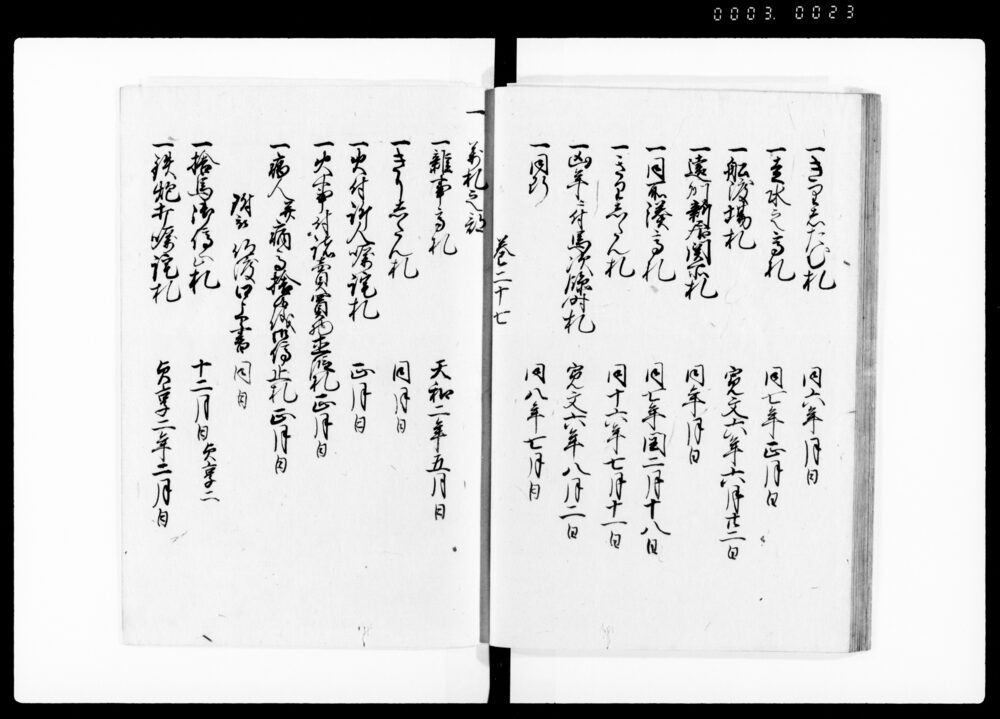 0003. 0023
一きりしたん札 同六年月日
一主水之高札 同七年正月日
一船渡場札 寛文六年六月廿二日
一遠州新居関所札 同年月日
一同所湊高札 同七年閏二月十八日
一きりしたん札 同十六年七月十一日
一凶年ニ付馬次添時札 寛文六年八月二日
一同断 同八年七月日
巻二十七
一高札之部
一雑事高札 天和二年五月日
一きりしたん札 同月日
一火付訴人嘱詫札 正月日
一火事ニ付諸売買物直段札 正月日
一病人并病馬捨候儀御停止札 正月日
附 口上書 同日
一捨馬御停止札 十二月日 貞享二
一鉄炮打嘱詫札 貞享二年二月日